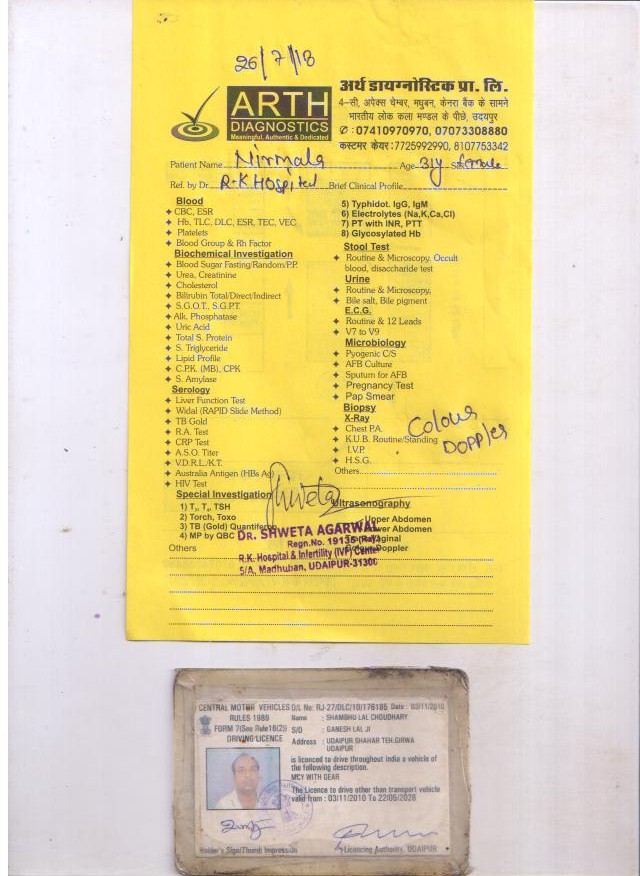 26/7/18
ARTH
DIAGNOSTICS
Meaningful, Authentic & Dedicated
अर्थ डायग्नोस्टिक प्रा. लि.
4-सी, अपेक्स चेम्बर, मधुबन, केनरा बैंक के सामने
भारतीय लोक कला मण्डल के पीछे, उदयपुर
07410970970, 07073308880
कस्टमर केयर: 7725992990, 8107753342
Patient Name Nirmala Age 31y female
Ref. by Dr. R-K HOSpital Brief Clinical Profile
Blood
CBC, ESR
Hb, TLC, DLC, ESR, TEC, VEC
Platelets
Blood Group & Rh Factor
Biochemical Investigation
Blood Sugar Fasting/Random/P.P.
Urea, Creatinine
Cholesterol
Bilirubin Total/Direct/Indirect
S.G.O.T., S.G.P.T.
Alk. Phosphatase
Uric Acid
Total S. Protein
S. Triglyceride
Lipid Profile
C.P.K. (MB), CPK
S. Amylase
Serology
Liver Function Test
Widal (RAPID Slide Method)
TB Gold
R.A. Test
CRP Test
A.S.O. Titer
V.D.R.L./K.T.
Australia Antigen (HBs Ag)
HIV Test
Special Investigation
1) T₃, T₄, TSH
2) Torch, Toxo
3) TB (Gold) Quantiferon
4) MP by QBC
Others
5) Typhidot. IgG, IgM
6) Electrolytes (Na,K,Ca,Cl)
7) PT with INR, PTT
8) Glycosylated Hb
Stool Test
Routine & Microscopy, Occult
blood, disaccharide test
Urine
Routine & Microscopy,
Bile salt, Bile pigment
E.C.G.
Routine & 12 Leads
V7 to V9
Microbiology
Pyogenic C/S
AFB Culture
Sputum for AFB
Pregnancy Test
Pap Smear
Biopsy
X-Ray
Chest P.A.
K.U.B. Routine/Standing
I.V.P.
H.S.G.
Others
Colour
DOPPler
Shweta
Ultrasonography
Upper Abdomen
Lower Abdomen
Colour Doppler
DR. SHWETA AGARWAL
Regn.No. 19135 (Raj)
R.K. Hospital & Infertility (IVF) Center
5/A, Madhuban, UDAIPUR-31300
CENTRAL MOTOR VEHICLES
RULES 1989
FORM 7(See Rule16(2))
DRIVING LICENCE
D/L No: RJ-27/DLC/10/176185 Date: 03/11/2010
Name : SHAMBHU LAL CHOUDHARY
S/O : GANESH LAL JI
Address : UDAIPUR SHAHAR TEH.GIRWA
UDAIPUR
is licenced to drive throughout India a vehicle of
the following description.
MCY WITH GEAR
The Licence to drive other than transport vehicle
valid from : 03/11/2010 To 22/05/2028
Holder's Sign/Thumb Impression
Licencing Authority, UDAIPUR